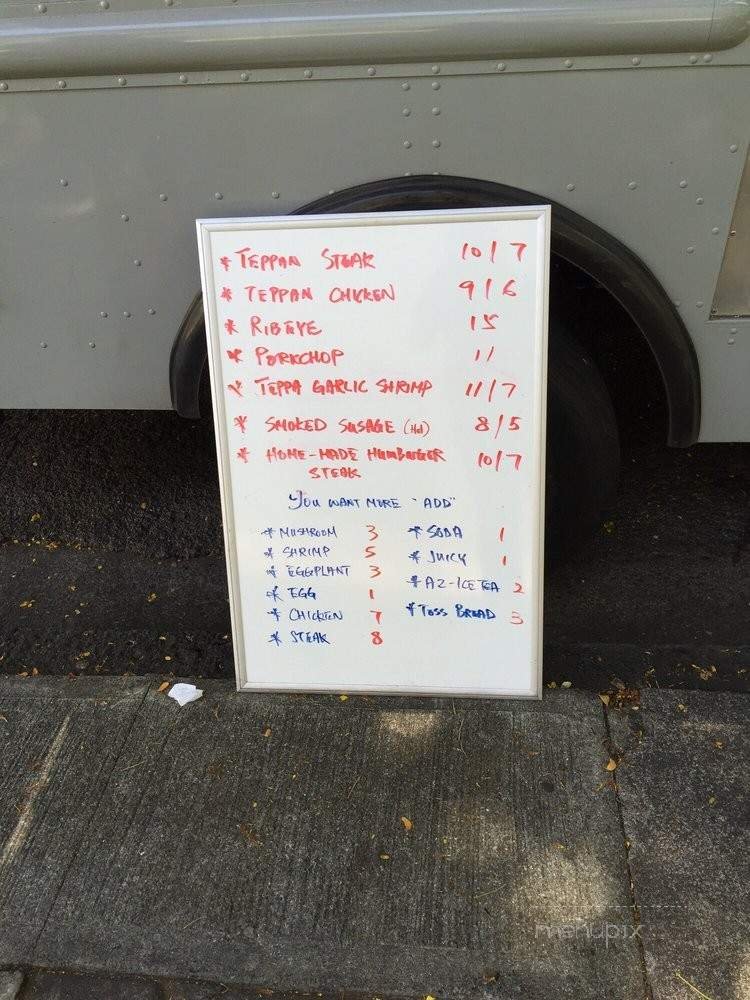 * TEPPAN STEAK 10/7
* TEPPAN CHICKEN 9/6
* RIBEYE 15
* PORKCHOP 11
* TEPPA GARLIC SHRIMP 11/7
* SMOKED SUSAGE (Hot) 8/5
* HOME-MADE HUMBURGER 10/7
STEAK
YOU WANT MORE "ADD"
* MUSHROOM 3 * SODA 1
* SHRIMP 5 * JUICY 1
* EGGPLANT 3 * AZ-ICE TEA 2
* EGG 1 * TOSS BREAD 3
* CHICKEN 7
* STEAK 8
menupix